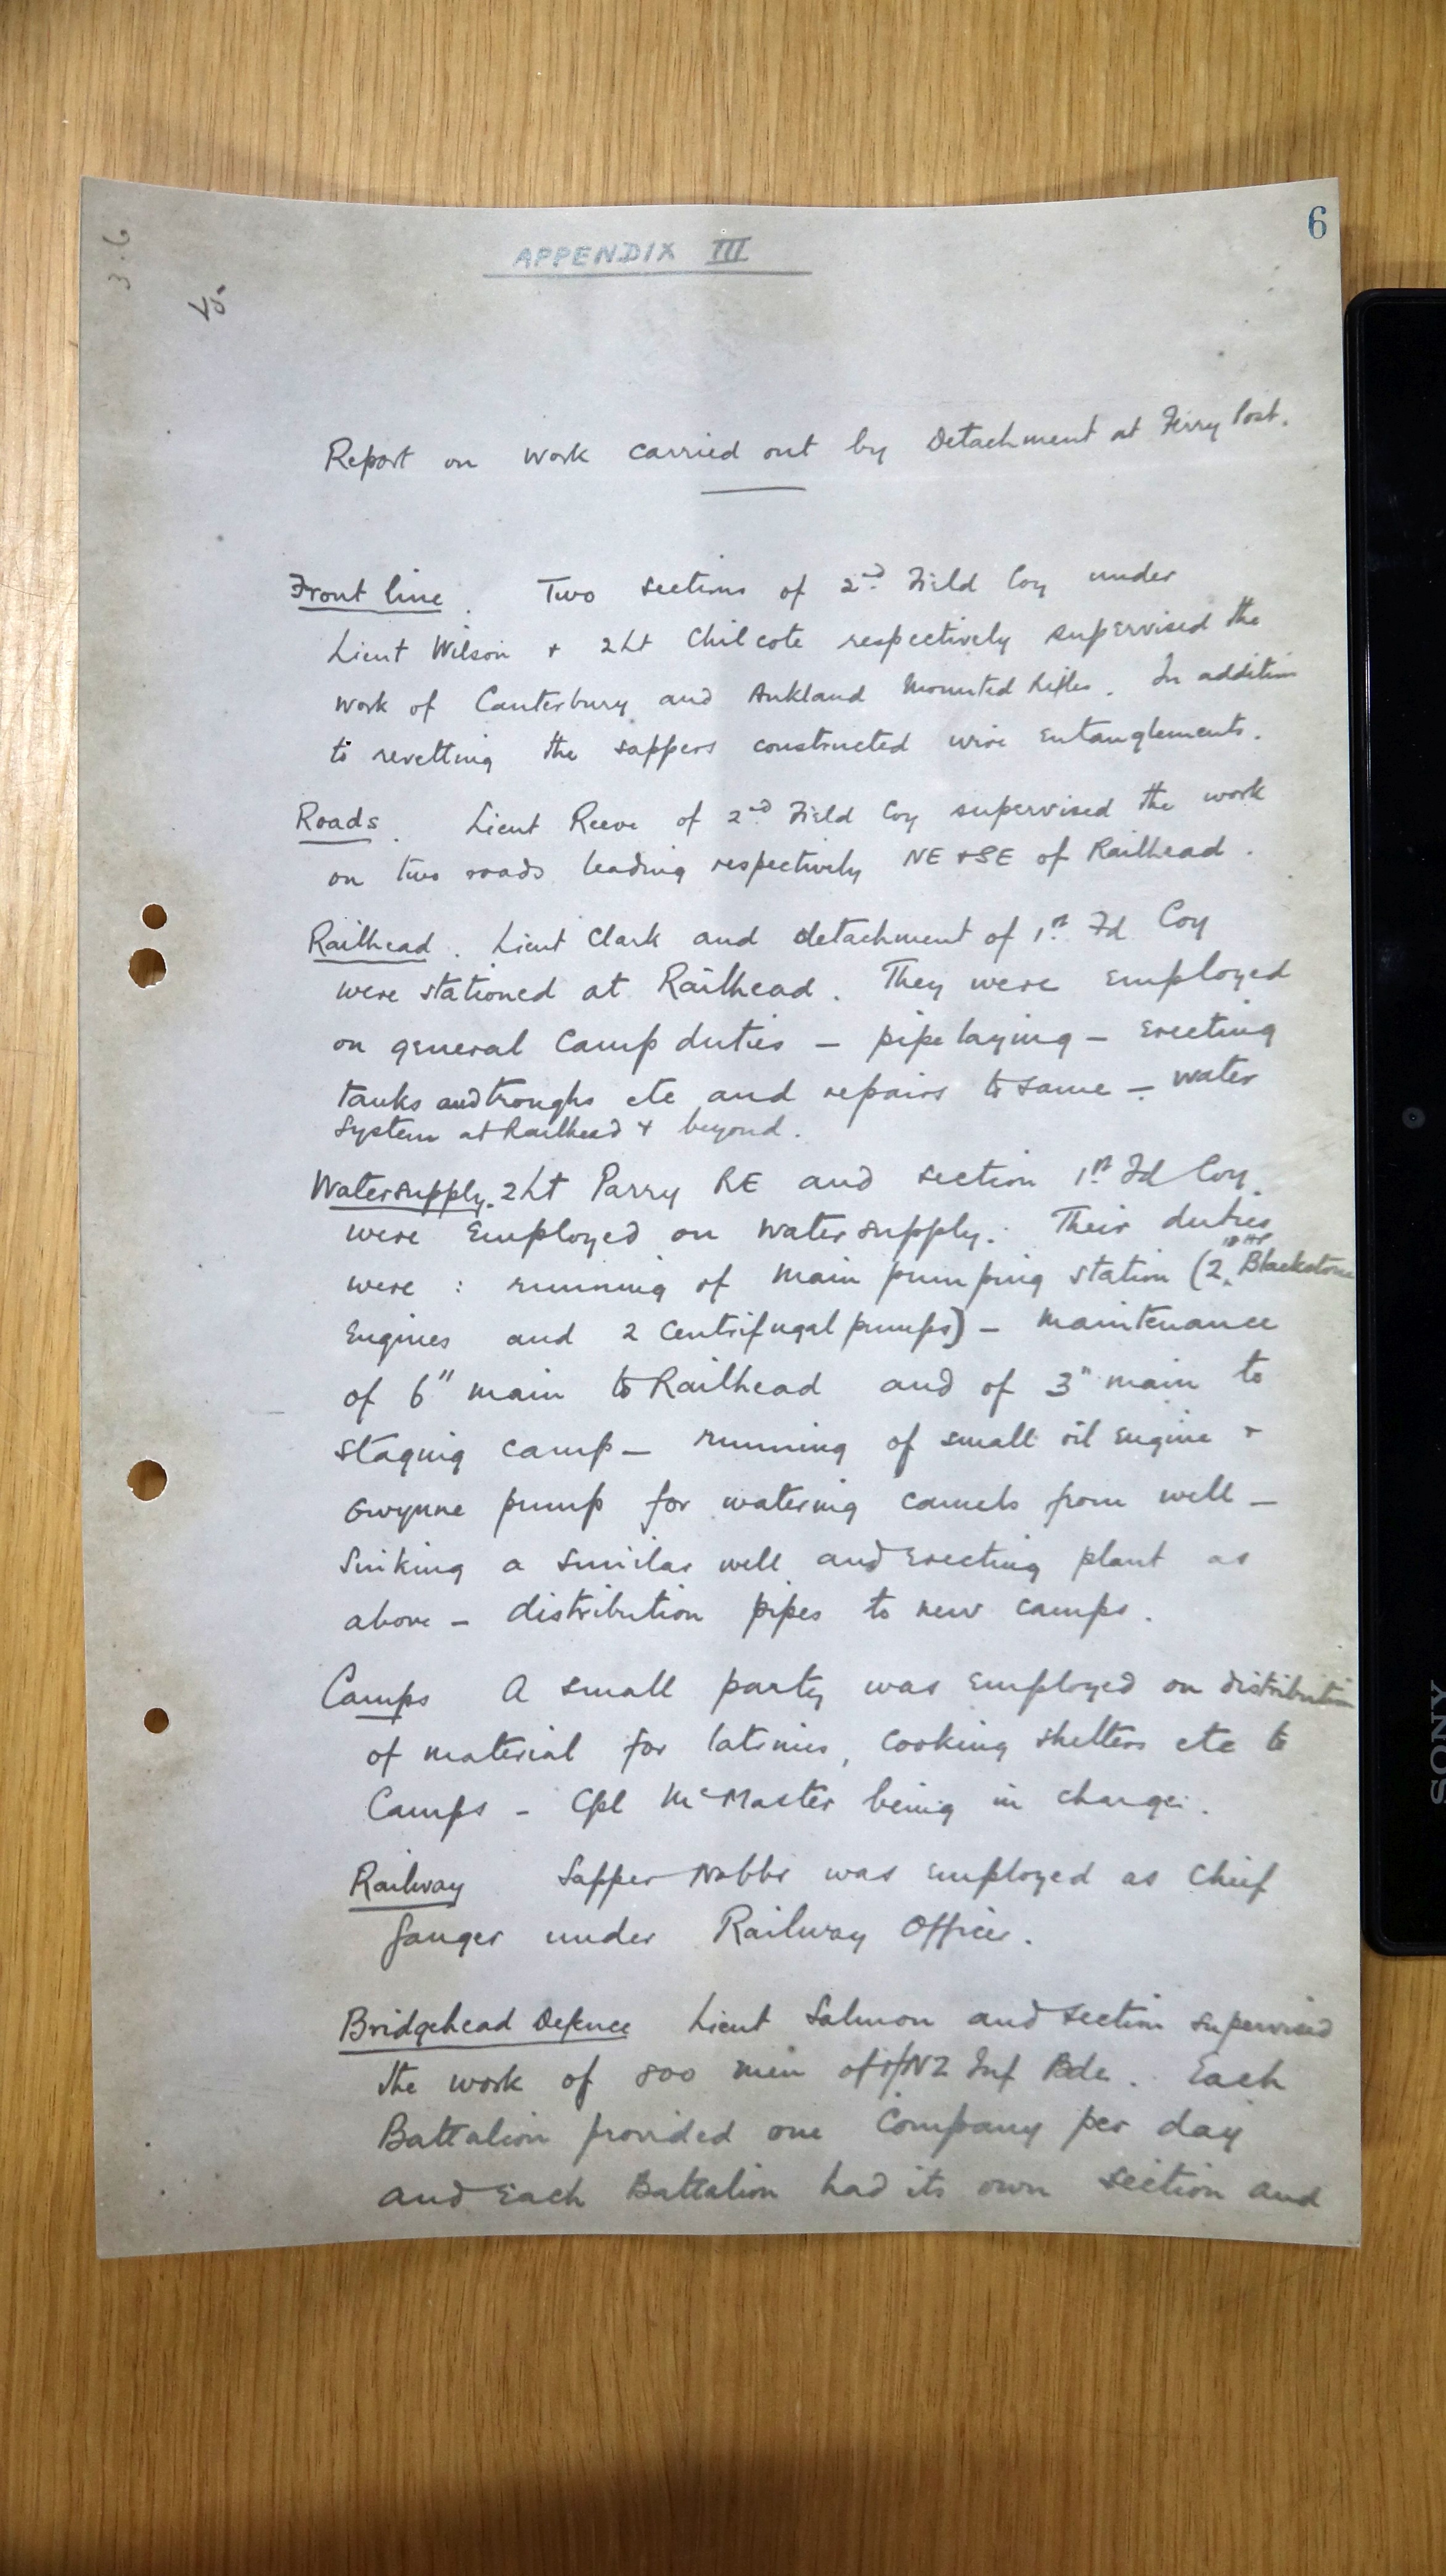 6
APPENDIX III
3.6
Report on work carried out by Detachment at Ferry Post.
Front line. Two sections of 2nd Field Coy under
Lieut Wilson + 2Lt Chilcote respectively supervised the
work of Canterbury and Aukland Mounted Rifles. In addition
to revetting the sappers constructed wire entanglements.
Roads. Lieut Reeve of 2nd Field Coy supervised the work
on two roads leading respectively NE + SE of Railhead.
Railhead. Lieut Clark and detachment of 1st Fd Coy
were stationed at Railhead. They were employed
on general Camp duties - pipe laying - erecting
tanks and troughs etc and repairs to same - water
system at Railhead + beyond.
Watersupply. 2Lt Parry RE and section 1st Fd Coy.
were employed on watersupply. Their duties
were : running of main pumping station (2 10 HP Blackstone
Engines and 2 Centrifugal pumps) - maintenance
of 6" main to Railhead and of 3" main to
staging camp - running of small oil engine +
Gwynne pump for watering camels from well -
Sinking a similar well and erecting plant as
above - distribution pipes to new camps.
Camps A small party was employed on distribution
of material for latrines, cooking shelters etc to
Camps - Cpl McMaster being in charge.
Railway Sapper Nobbs was employed as Chief
ganger under Railway Officer.
Bridgehead Defence Lieut Salmon and section supervised
the work of 800 men of NZ Inf Bde. Each
Battalion provided one Company per day
and each Battalion had its own section and
SONY